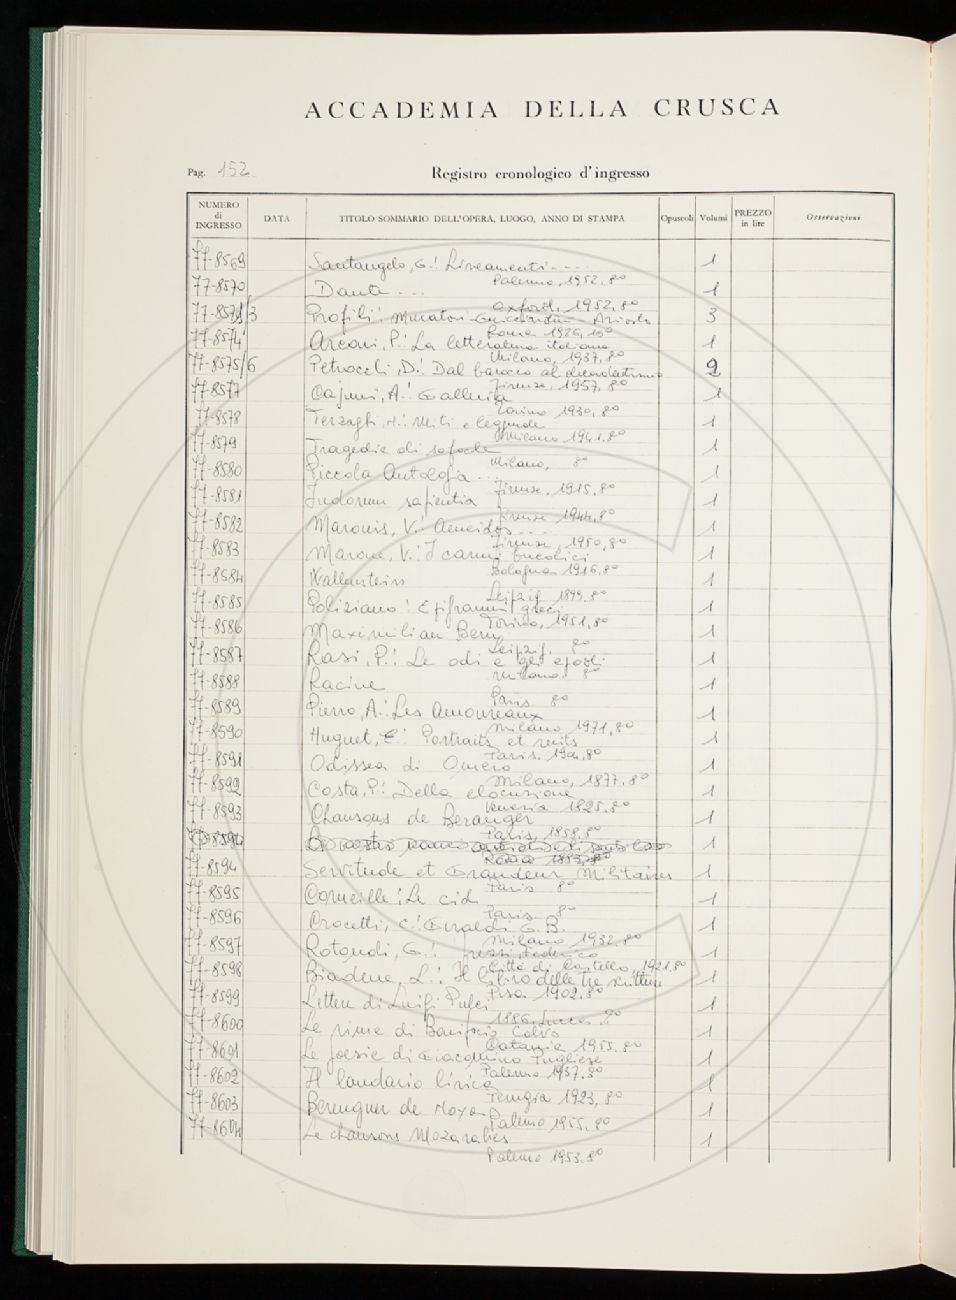 ACCADEMIA DELLA CRUSCA
Pag. 152
Registro cronologico d'ingresso
NUMERO di INGRESSO DATA TITOLO SOMMARIO DELL'OPERA, LUOGO, ANNO DI STAMPA Opuscoli Volumi PREZZO in lire Osservazioni
77-8569 Santangelo, G.: Lineamenti.... 1
Palermo, 1952. 8º
77-8570 Dante ... 1
Oxford, 1952, 8º
77-8571/3 Profili: Muratori - Guicciardini - Ariosto 3
Roma 1926, 16º
77-8574 Arconi, P.: La letteratura italiana 1
Milano, 1937, 8º
77-8575/6 Petrocchi, D.: Dal barocco al decadentismo 2
Firenze, 1957, 8º
77-8577 Cajumi, A.: Galleria 1
Torino 1930, 8º
77-8578 Terzaghi, N.: Miti e leggende 1
Milano 1941. 8º
77-8579 Tragedie di Sofocle 1
Milano, 8º
77-8580 Piccola Antologia ... 1
Firenze, 1915. 8º
77-8581 Indorum sapientia 1
Firenze 1944, 8º
77-8582 Maronis, V.: Aeneidos .... 1
Firenze, 1950, 8º
77-8583 Marone, V.: I carmi bucolici 1
Bologna 1916, 8º
77-8584 Wallenstein 1
Leipzig 1899. 8º
77-8585 Poliziano: Epigrammi greci 1
Torino, 1951, 8º
77-8586 Maximilian Bern, 1
Leipzig. 8º
77-8587 Rasi, P.: Le odi e gli epodi 1
Milano, 8º
77-8588 Racine 1
Paris 8º
77-8589 Pierro, A.: Les Amoureaux 1
Milano 1971, 8º
77-8590 Huguet, E.: Portraits et recits 1
Paris. 1904, 8º
77-8591 Odissea di Omero 1
Milano, 1877. 8º
77-8592 Costa, P.: Della elocuzione 1
Venezia 1825. 8º
77-8593 Chansons de Beranger 1
Paris, 1859, 8º
1
77-8594 Servitude et Grandeur Militaires 1
Paris 8º
77-8595 Corneille: Le cid 1
Paris 8º
77-8596 Crocetti, C.: Giraldi G.B. 1
Milano 1932, 8º
77-8597 Rotondi, G.: Frezzi, Federico 1
Città di Castello, 1921. 8º
77-8598 Biadene, L.: Il Libro delle Tre scritture 1
Pisa 1902, 8º
77-8599 Lettere di Luigi Pulci 1
1886, Lucca 8º
77-8600 Le rime di Bonifacio Calvo 1
Catania 1955. 8º
77-8601 Le poesie di Giacomino Pugliese 1
Palermo 1937. 8º
77-8602 Il laudario lirico 1
Perugia 1923, 8º
77-8603 Berenguer de Noya 1
Palermo 1955. 8º
77-8604 Le chansons Mozarabes 1
Palermo 1953. 8º